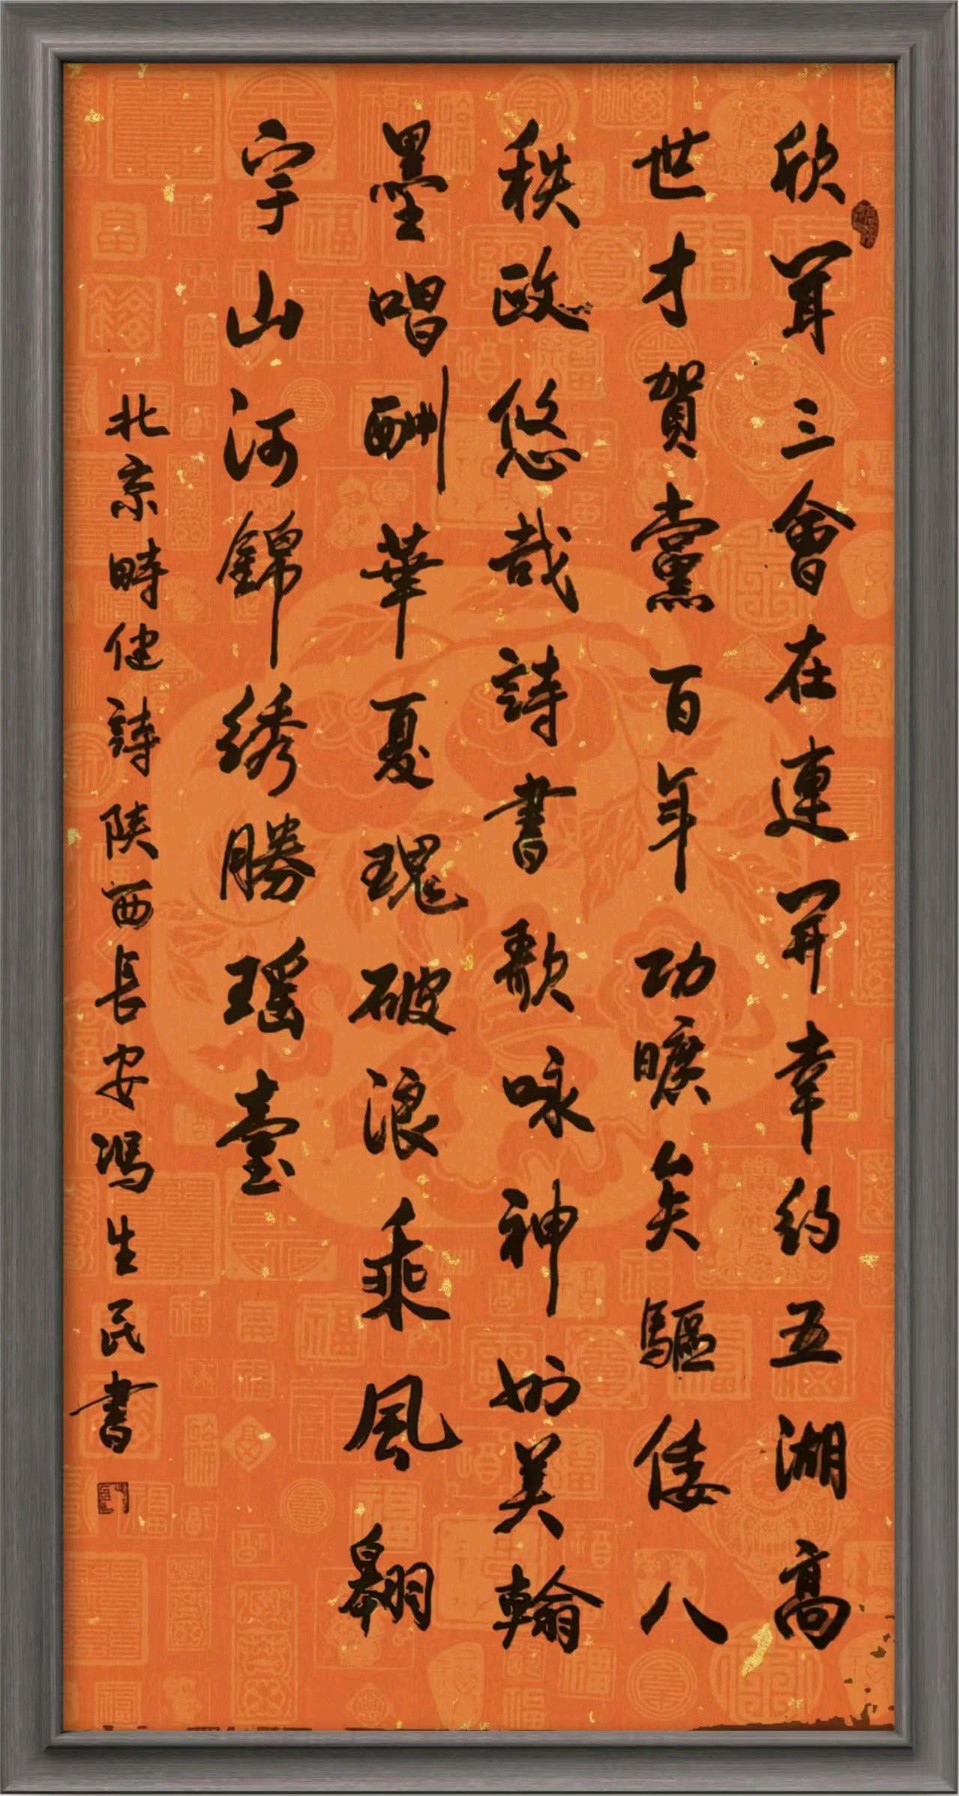 欣聞三會在連開幸約五湖高
世才賀黨百年功曠矣驅倭八
秩政悠哉詩書歌咏神州美翰
墨唱酬華夏瑰破浪乘風翱
宇山河錦綉勝瑤臺
北京時健詩陝西長安馮生民書